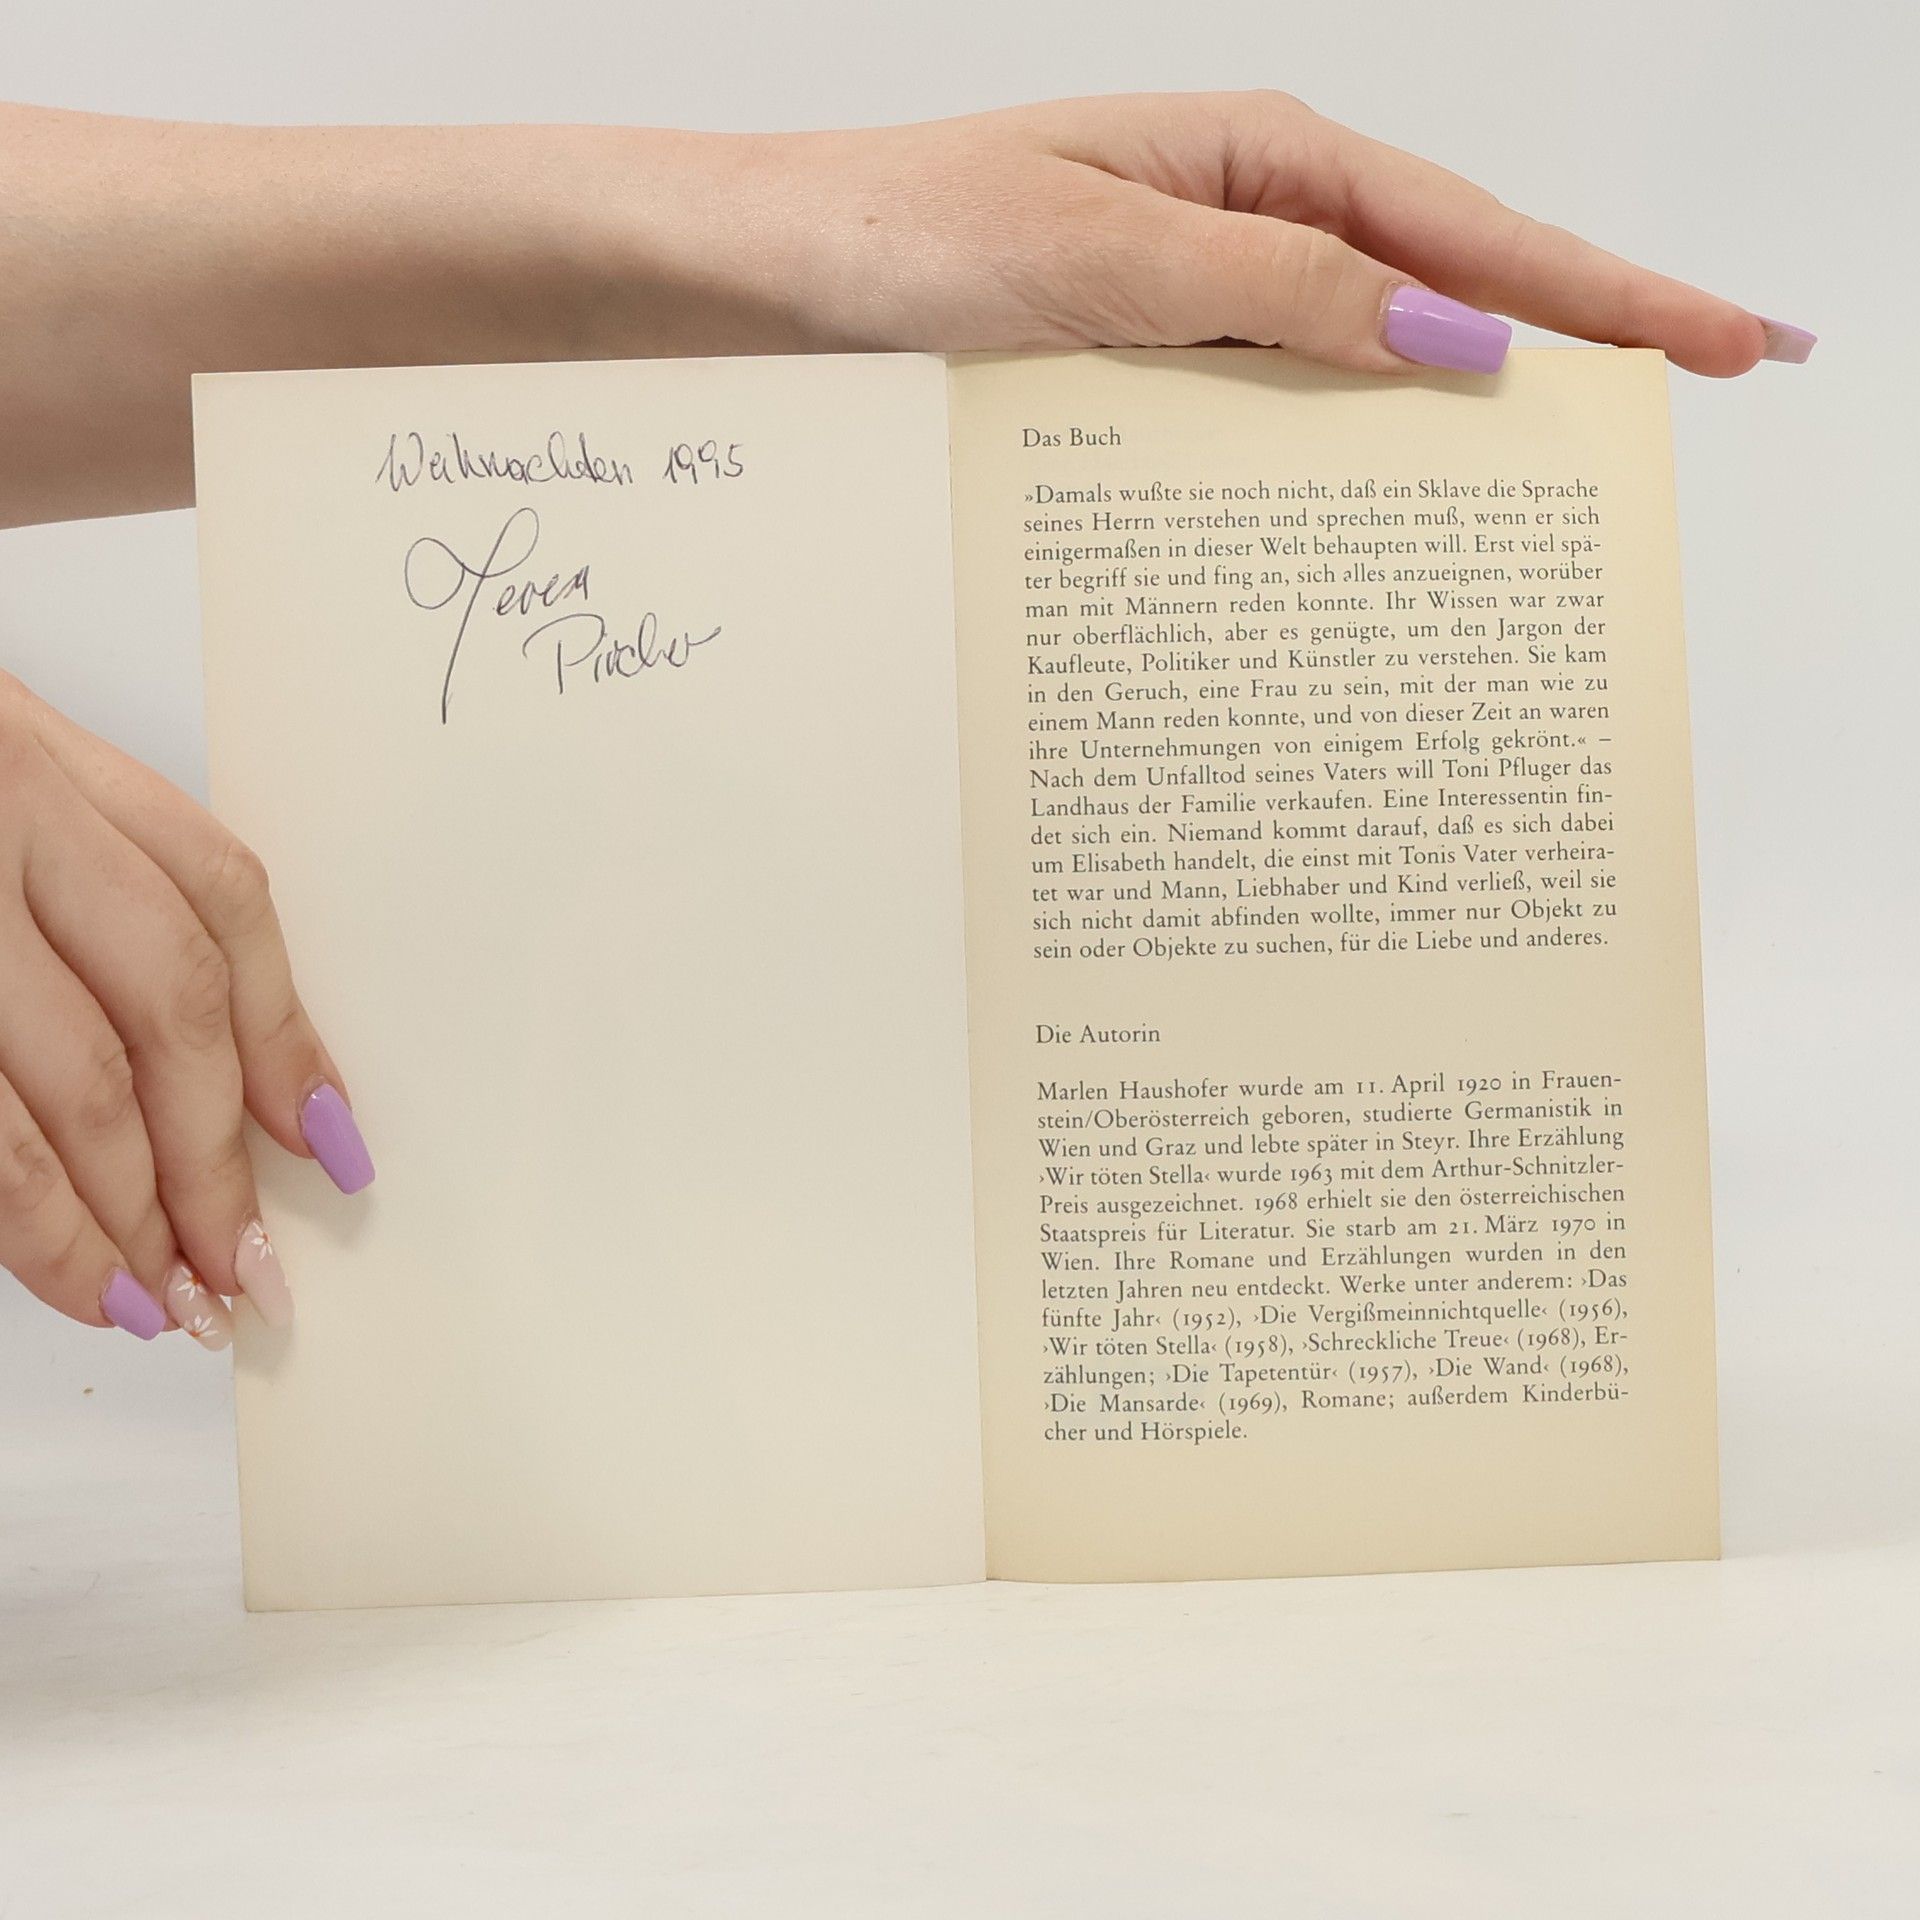 Weihnachten 1995
Pircher
Das Buch
»Damals wußte sie noch nicht, daß ein Sklave die Sprache
seines Herrn verstehen und sprechen muß, wenn er sich
einigermaßen in dieser Welt behaupten will. Erst viel spä-
ter begriff sie und fing an, sich alles anzueignen, worüber
man mit Männern reden konnte. Ihr Wissen war zwar
nur oberflächlich, aber es genügte, um den Jargon der
Kaufleute, Politiker und Künstler zu verstehen. Sie kam
in den Geruch, eine Frau zu sein, mit der man wie zu
einem Mann reden konnte, und von dieser Zeit an waren
ihre Unternehmungen von einigem Erfolg gekrönt.« –
Nach dem Unfalltod seines Vaters will Toni Pfluger das
Landhaus der Familie verkaufen. Eine Interessentin fin-
det sich ein. Niemand kommt darauf, daß es sich dabei
um Elisabeth handelt, die einst mit Tonis Vater verheira-
tet war und Mann, Liebhaber und Kind verließ, weil sie
sich nicht damit abfinden wollte, immer nur Objekt zu
sein oder Objekte zu suchen, für die Liebe und anderes.
Die Autorin
Marlen Haushofer wurde am 11. April 1920 in Frauen-
stein/Oberösterreich geboren, studierte Germanistik in
Wien und Graz und lebte später in Steyr. Ihre Erzählung
›Wir töten Stella‹ wurde 1963 mit dem Arthur-Schnitzler-
Preis ausgezeichnet. 1968 erhielt sie den österreichischen
Staatspreis für Literatur. Sie starb am 21. März 1970 in
Wien. Ihre Romane und Erzählungen wurden in den
letzten Jahren neu entdeckt. Werke unter anderem: ›Das
fünfte Jahr‹ (1952), ›Die Vergißmeinnichtquelle‹ (1956),
›Wir töten Stella‹ (1958), ›Schreckliche Treue‹ (1968), Er-
zählungen; ›Die Tapetentür‹ (1957), ›Die Wand‹ (1968),
›Die Mansarde‹ (1969), Romane; außerdem Kinderbü-
cher und Hörspiele.